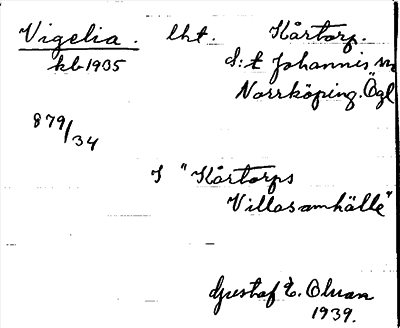 Vigelia. lht. Kårtorp.
kb 1935 S:t Johannis sn
Norrköping. Ögl
879/34
I "Kårtorps
Villasamhälle"
Gustaf E. Olsson
1939.